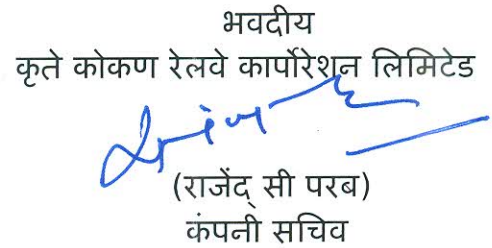 भवदीय
कृते कोकण रेलवे कार्पोरेशन लिमिटेड
(राजेंद् सी परब)
कंपनी सचिव